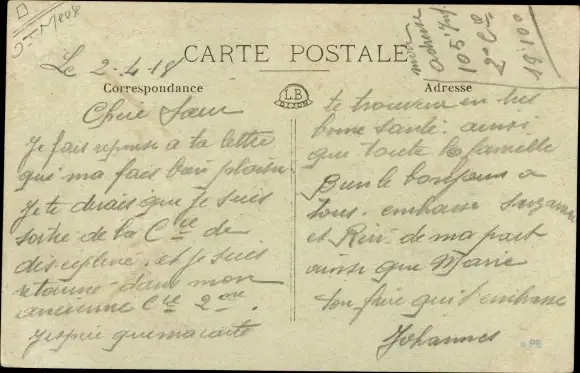 55 Meuse
CARTE POSTALE
Le 2-4-18
Correspondance
Adresse
LB
DIJON
mon
adresse
105 Inf
2e Cie
19.100
Chère Sœur
Je fais reponse a ta lettre
qui ma fais bien plaisir
Je te dirais que je suis
sortie de la Cie de
discipline et je suis
retourne dans mon
ancienne Cie 2me.
J'espère que ma carte
te trouvera en tres
bonne santé. ainsi
que toute la famille
Bien le bonjour a
tous. embrasse Suzanne
et Riri de ma part
ainsi que Marie
ton frère qui t'embrasse
Johannes
PB